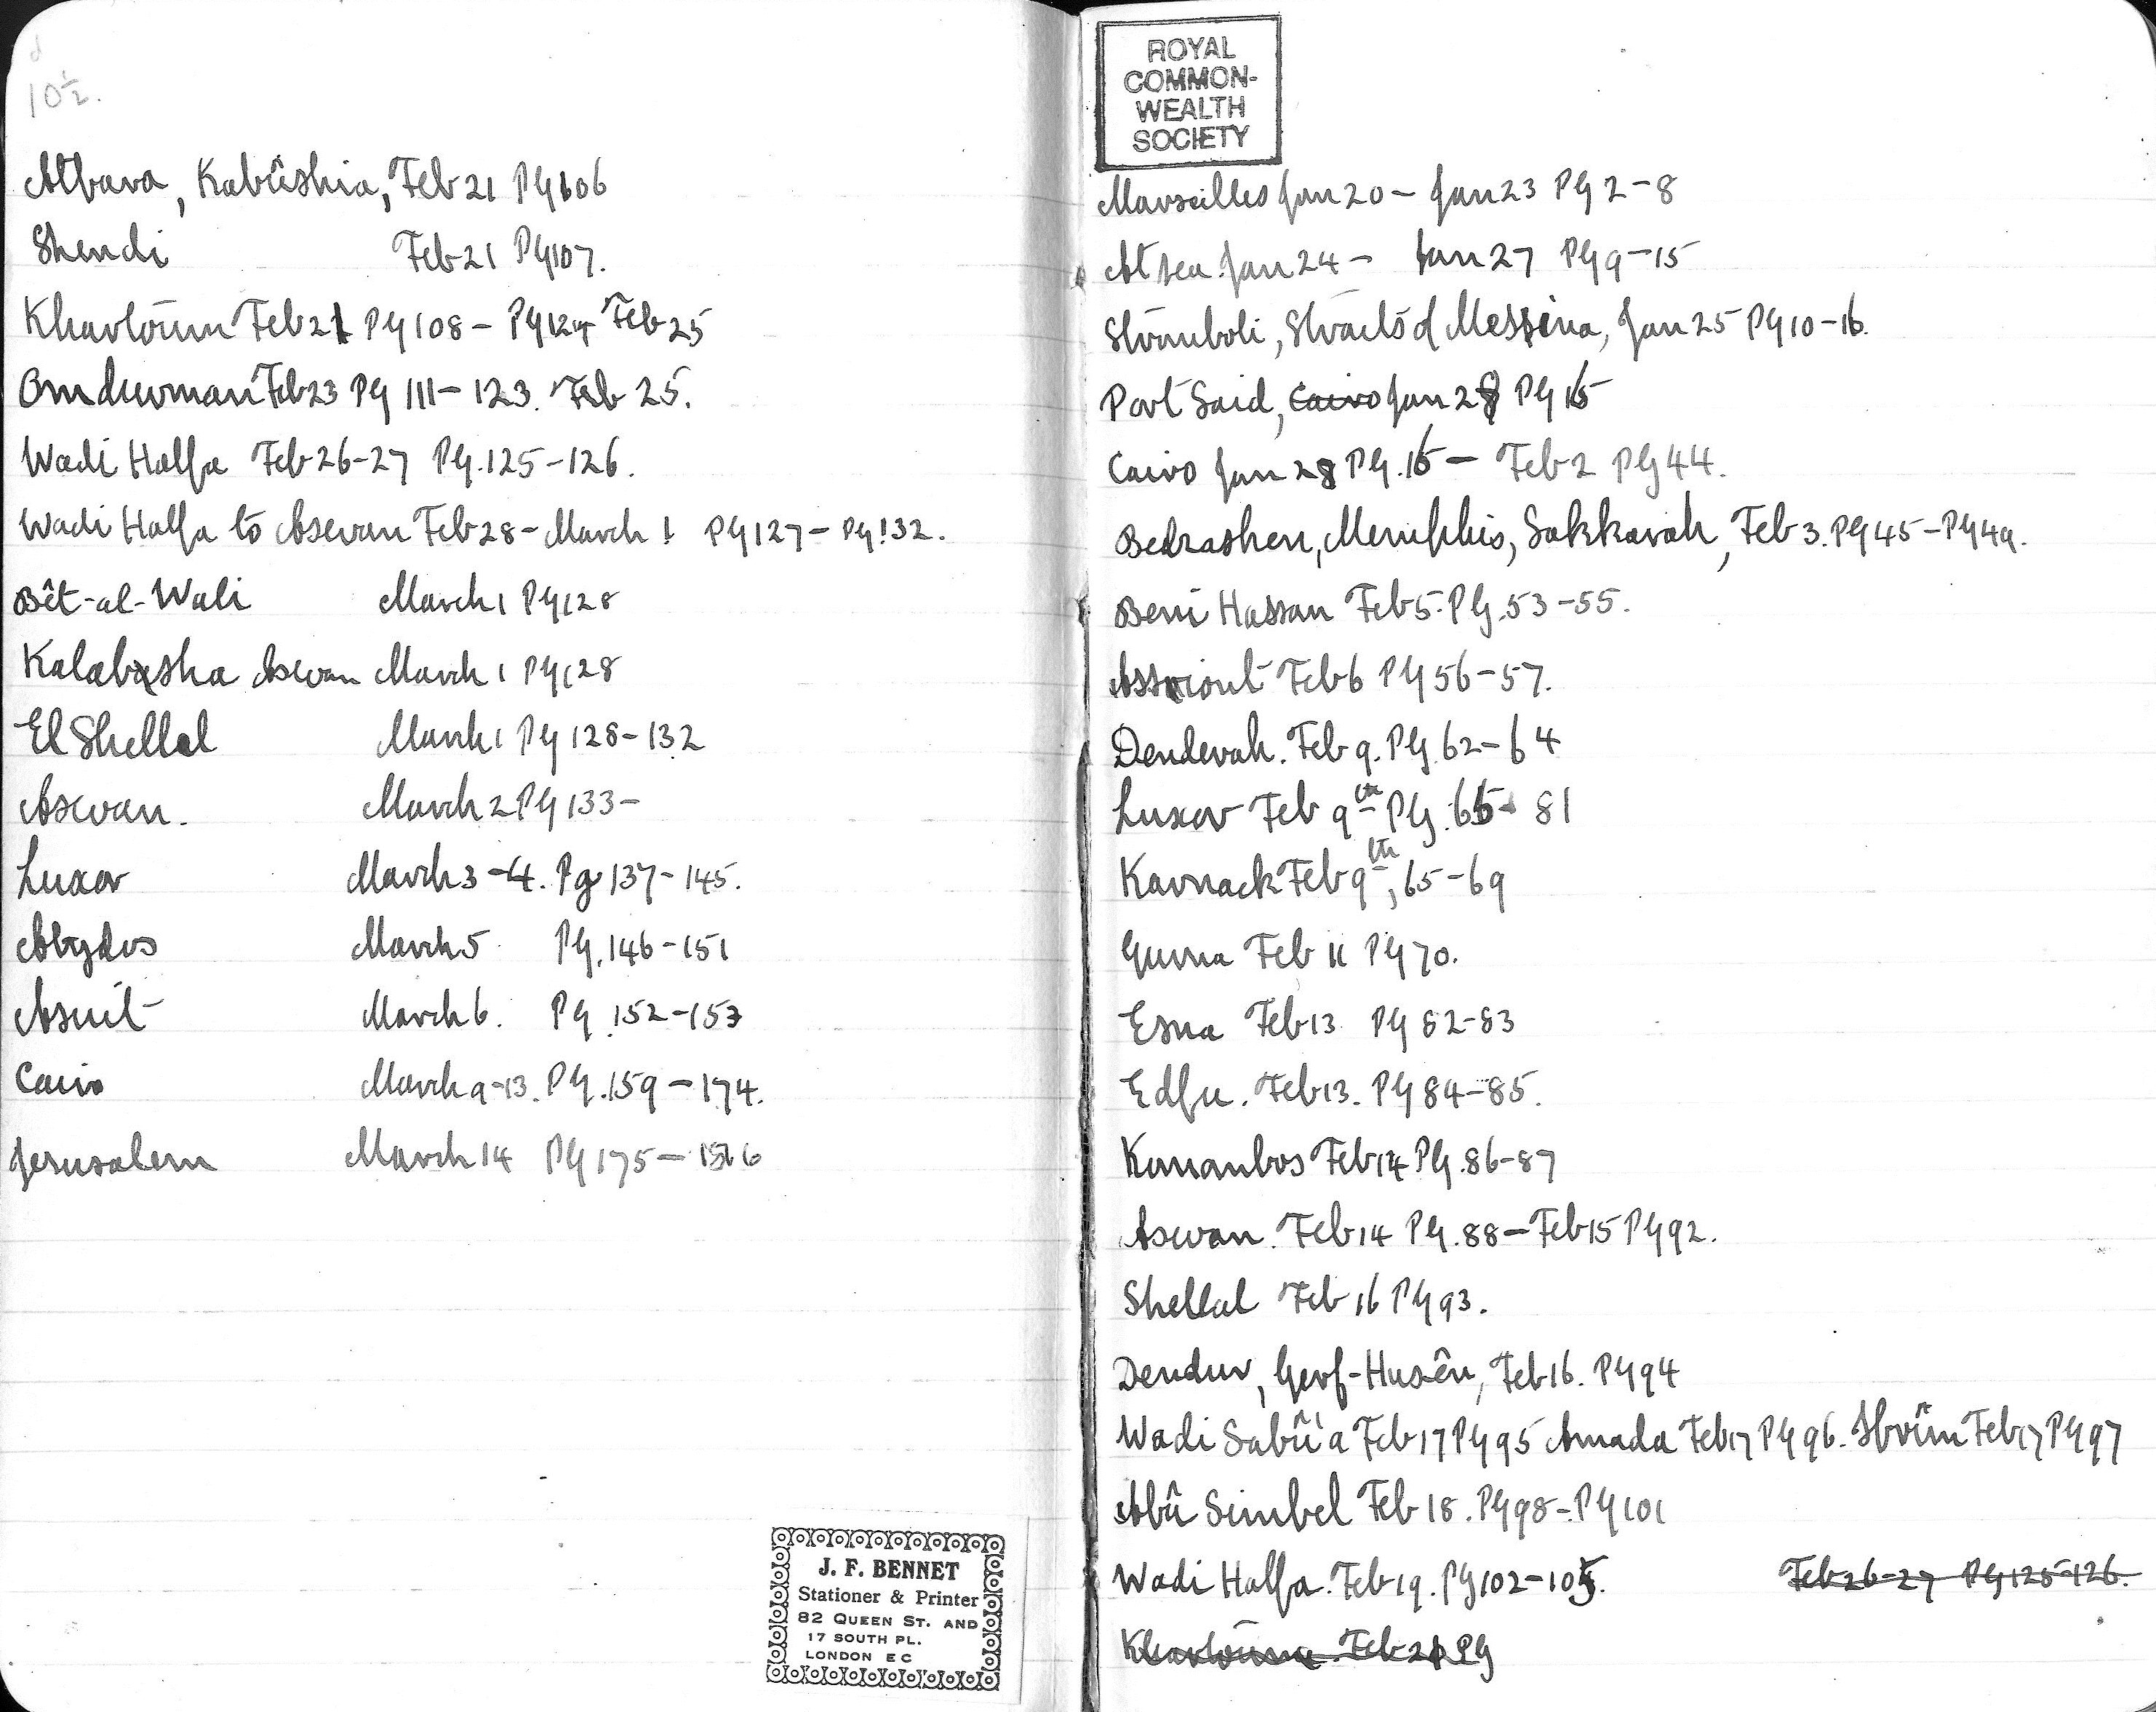 d
10½.
Atbara, Kabûshia, Feb 21 PG 106
Shendi Feb 21 PG 107.
Khartoum Feb 21 PG 108 - PG 124 Feb 25
Omdurman Feb 23 PG 111 - 123. Feb 25.
Wadi Halfa Feb 26-27 PG. 125-126.
Wadi Halfa to Aswan Feb 28 - March 1 PG 127 - PG 132.
Bêt-al-Wali March 1 PG 128
Kalabsha Aswan March 1 PG 128
El Shellal March 1 PG 128-132
Aswan. March 2 PG 133-
Luxor March 3-4. Pg 137-145.
Abydos March 5 PG. 146-151
Asuit March 6. PG 152-153
Cairo March 9-13. PG. 159-174.
Jerusalem March 14 PG 175-
J. F. BENNET
Stationer & Printer
82 QUEEN ST. AND
17 SOUTH PL.
LONDON E C
ROYAL
COMMON-
WEALTH
SOCIETY
Marseilles Jan 20 - Jan 23 PG 2-8
At sea Jan 24 - Jan 27 PG 9-15
Stromboli, Straits of Messina, Jan 25 PG 10-16.
Port Said, Cairo Jan 28 PG 16
Cairo Jan 28 PG. 16 - Feb 2 PG 44.
Bedrashen, Memphis, Sakkarah, Feb 3. PG 45 - PG 49.
Beni Hassan Feb 5. PG. 53-55.
Assiout Feb 6 PG 56-57.
Denderah. Feb 9. PG. 62-64
Luxor Feb 9th PG. 65-81
Karnack Feb 9th, 65-69
Gurna Feb 11 PG 70.
Esna Feb 13 PG 82-83
Edfu. Feb 13. PG 84-85.
Komombos Feb 14 PG. 86-87
Aswan. Feb 14 PG. 88 - Feb 15 PG 92.
Shellal Feb 16 PG 93.
Dendur, Gerf-Husên, Feb 16. PG 94
Wadi Sabû'a Feb 17 PG 95 Amada Feb 17 PG 96. Ibrîm Feb 17 PG 97
Abû Simbel Feb 18. PG 98 - PG 101
Wadi Halfa. Feb 19. PG 102-105. Feb 26-27 PG 125-126.
Khartoum Feb 21 PG